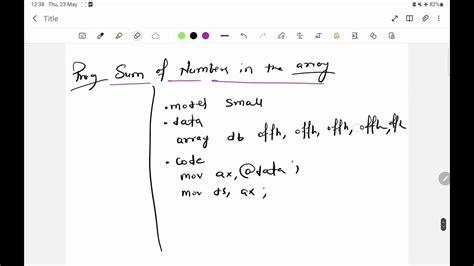 12:38 Thu, 23 May
82%
Title
Prog Sum of Numbers in the array
.model small
.data
array db 0ffh, 0ffh, 0ffh, 0ffh, ffh
.code
mov ax, @data ;
mov ds, ax ;